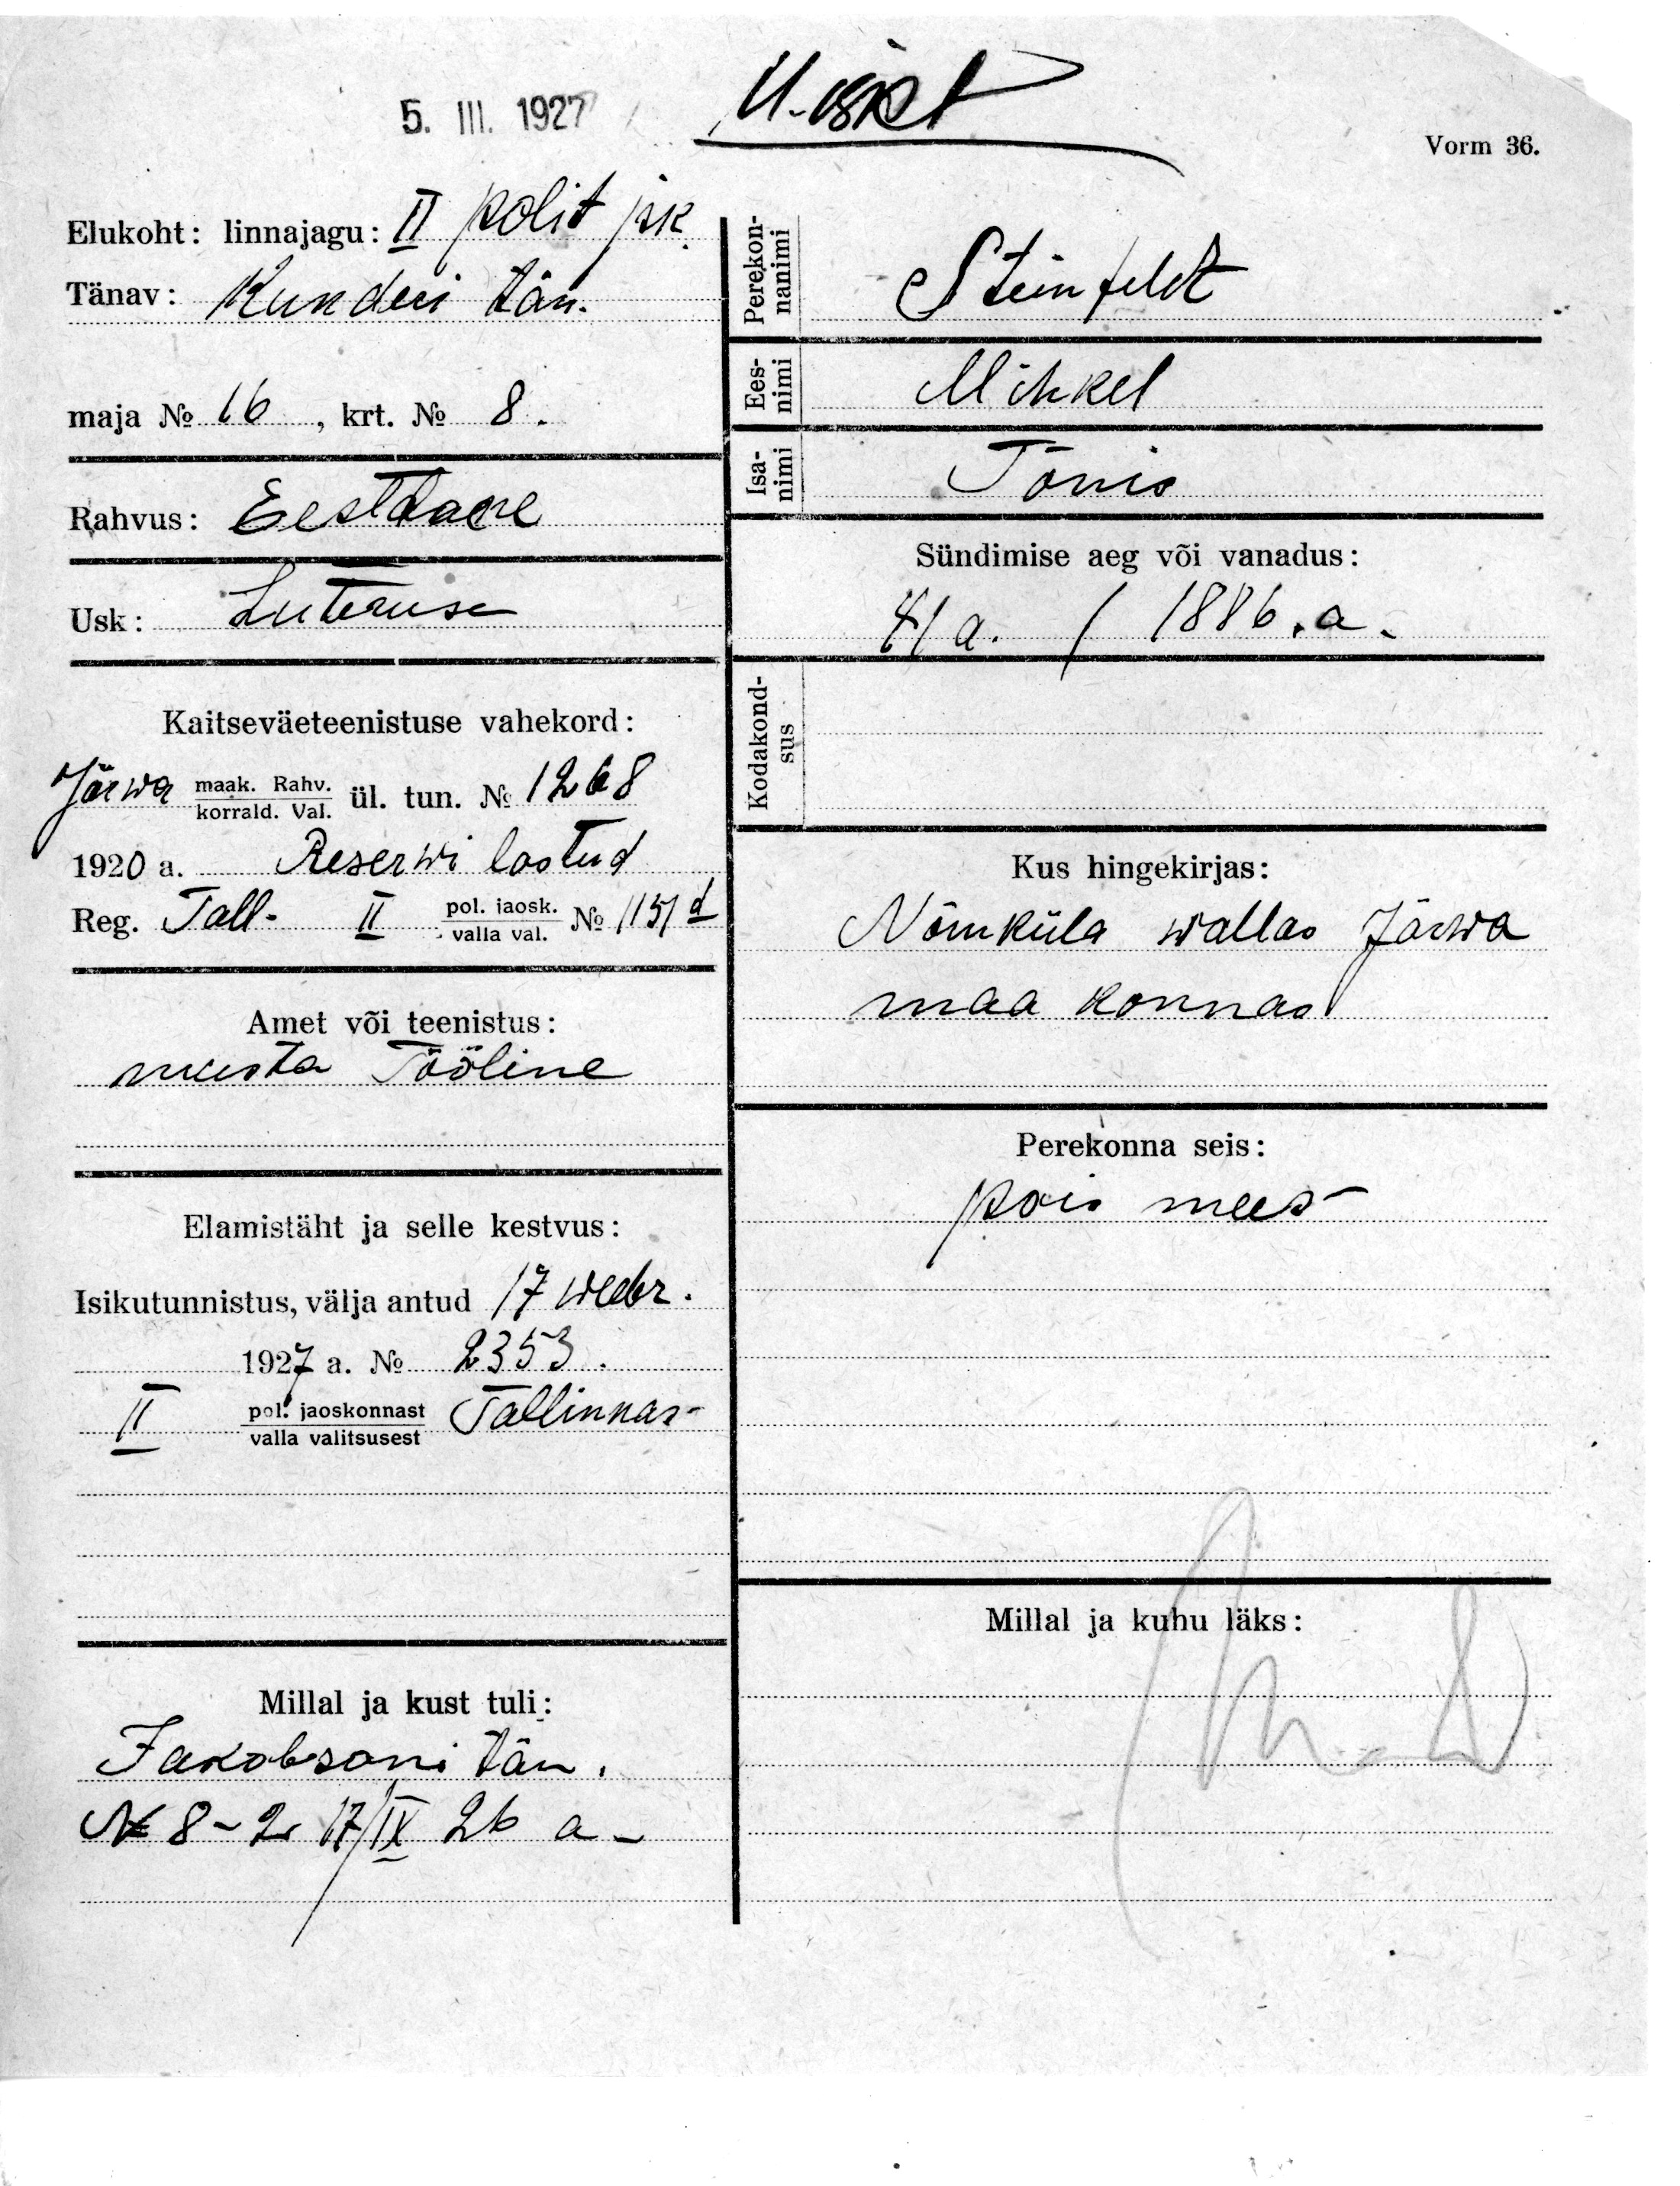 5. III. 1927
Vorm 36.
Elukoht: linnajagu: II polit jsk.
Tänav: Kunderi tän.
maja № 16, krt. № 8.
Rahvus: Eestlane
Usk: Luteruse
Kaitseväeteenistuse vahekord:
Järwa maak. Rahv. korrald. Val. ül. tun. № 1268
1920 a. Reserwi lastud
Reg. Tall. II pol. jaosk. valla val. №
Amet või teenistus:
musta Tööline
Elamistäht ja selle kestvus:
Isikutunnistus, välja antud 17 weebr.
1927 a. № 2353.
II pol. jaoskonnast valla valitsusest Tallinnas
Millal ja kust tuli:
Jakobsoni tän.
№ 8-2 17/IX 26 a-
Perekonnanimi
Steinfeldt
Eesnimi
Mihkel
Isanimi
Tõnis
Sündimise aeg või vanadus:
41 a. / 1886.a.
Kodakondsus
Kus hingekirjas:
Nõmküla wallas Järwa
maa konnas
Perekonna seis:
pois mees
Millal ja kuhu läks: